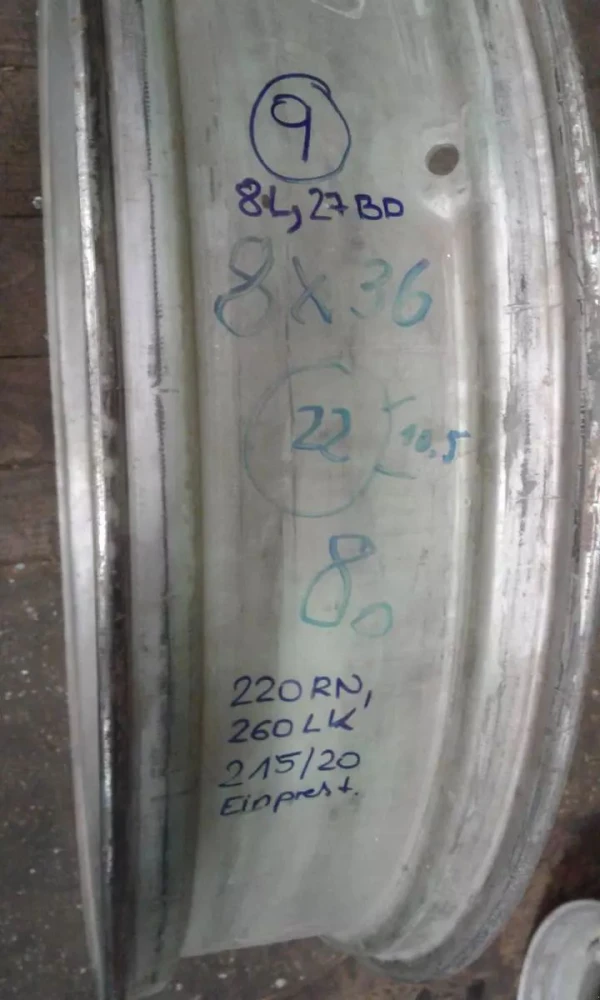 9
8L, 27BD
8x36
22 10.5
80
220RN,
260LK
215/20
Einprest.